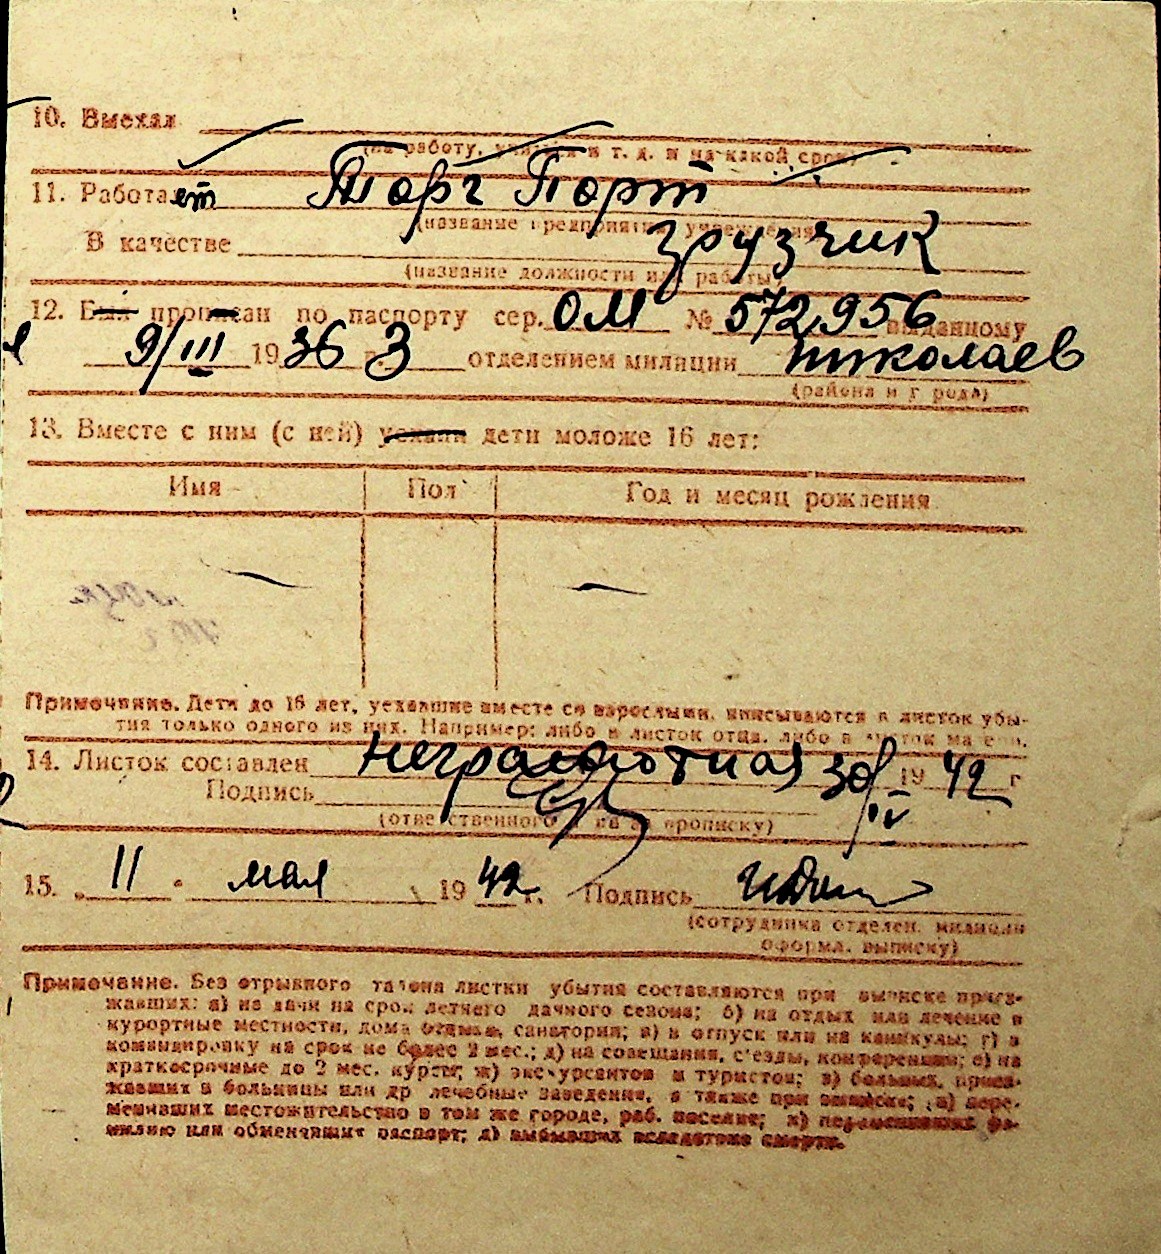 10. Выехал
(на работу, учиться и т. д. и на какой срок)
11. Работает Торг Порт
(название предприятия, учреждения)
В качестве грузчик
(название должности или работы)
12. Был прописан по паспорту сер. ОМ № 572956 выданному
9/III 1936 г. 3 отделением милиции Николаев
(района и города)
13. Вместе с ним (с ней) уехали дети моложе 16 лет:
Имя Пол Год и месяц рождения
Примечание. Дети до 16 лет, уехавшие вместе со взрослыми, вписываются в листок убы-
тия только одного из них. Например: либо в листок отца, либо в листок матери.
14. Листок составлен неграмотная 30/IV 1942 г
Подпись
(ответственного за прописку)
15. „ 11 " мая 1942 г. Подпись
(сотрудника отделен. милиции
оформл. выписку)
Примечание. Без отрывного талона листки убытия составляются при выписке приез-
жавших: а) на дачи на срок летнего дачного сезона; б) на отдых или лечение в
курортные местности, дома отдыха, санатории; в) в отпуск или на каникулы; г) в
командировку на срок не более 2 мес.; д) на совещания, с'езды, конференции; е) на
краткосрочные до 2 мес. курсы; ж) экскурсантов и туристов; з) больных, приез-
жавших в больницы или др лечебные заведения, а также при выписке; и) пере-
менивших местожительство в том же городе, раб. поселке; к) переменивших фа-
милию или обменявших паспорт; л) выбывших вследствие смерти.